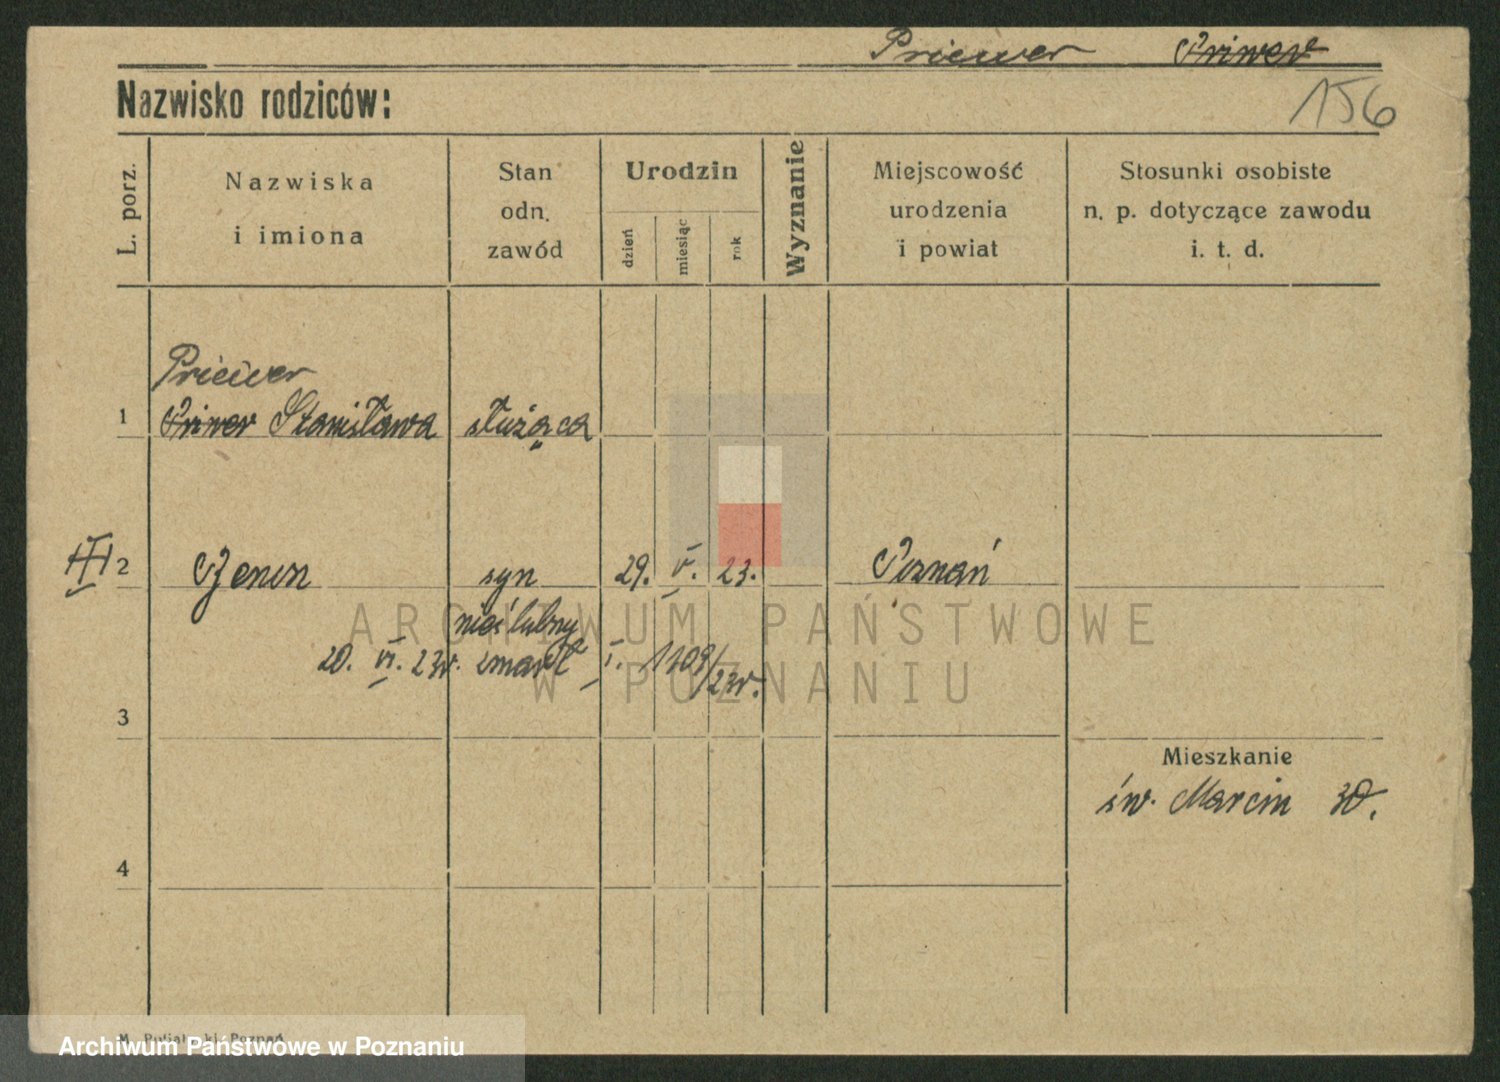 Priewer Priwer
Nazwisko rodziców:
156
L. porz.
Nazwiska
i imiona
Stan
odn.
zawód
Urodzin
dzień
miesiąc
rok
Wyznanie
Miejscowość
urodzenia
i powiat
Stosunki osobiste
n. p. dotyczące zawodu
i. t. d.
Priewer
1 Priwer Stanisława służąca
2 syn 29. V. 23. Poznań
nieślubny
20. VI. 23r. zmarł I. 1109/23r.
3
Mieszkanie
św. Marcin 30.
4
ARCHIWUM PAŃSTWOWE
W POZNANIU
Archiwum Państwowe w Poznaniu